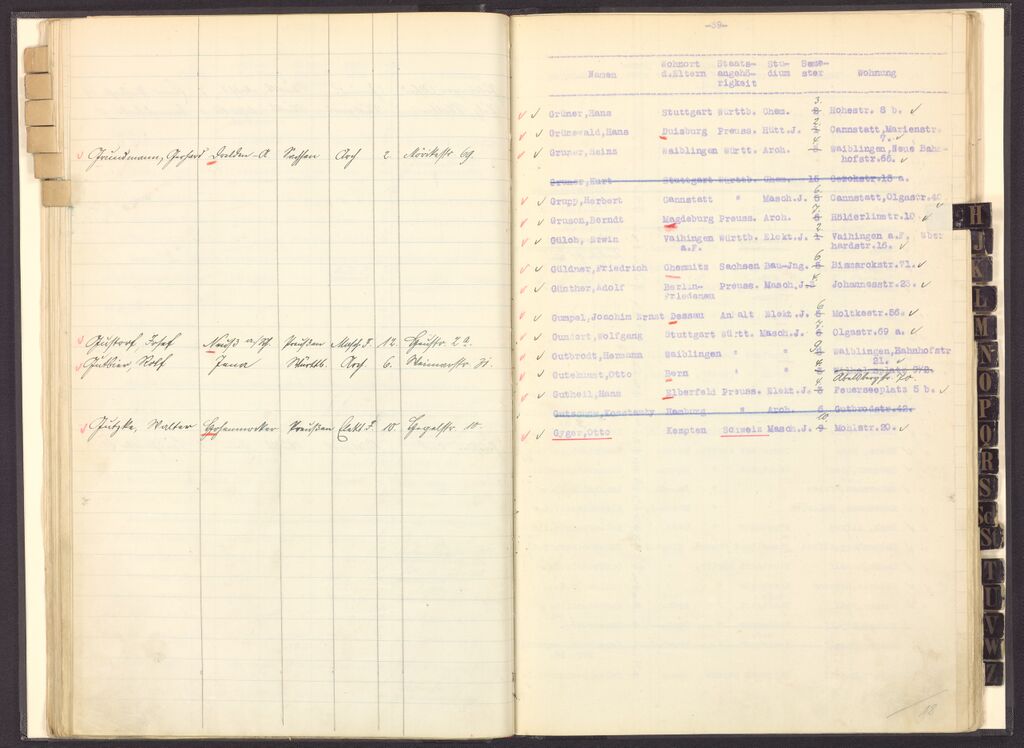 Grundmann, Gerhard Dresden-A Sachsen Arch 2 Mörikestr. 69.
Gustorf, Josef Neuß a/Rh. Preußen Masch. J. 12. 2a.
Gutbier, Rolf Jena Württb. Arch 6. Weimarstr. 31.
Gutzke, Walter Preußen Elekt J. 10. Hegelstr. 10
-39-
Namen Wohnort d.Eltern Staats-angehö-rigkeit Stu-dium Seme-ster Wohnung
3.
Grüner,Hans Stuttgart Württb. Chem. 2 Hohestr. 8 b.
2.
Grünewald,Hans Duisburg Preuss. Hütt.J. 1 Cannstatt,Marienstr.
7.
4.
Gruner,Heinz Waiblingen Württ. Arch. 3 Waiblingen,Neue Bahn-
hofstr.66.
Gruner,Kurt Stuttgart Württb. Chem. 15 Gerokstr.13 a.
6.
Grupp,Herbert Cannstatt " Masch.J. 5 Cannstatt,Olgastr.40
7.
Gruson,Berndt Magdeburg Preuss. Arch. 6 Hölderlinstr.10
2.
Gülch, Erwin Vaihingen Württb. Elekt.J. 1 Vaihingen a.F. Eber
a.F. hardstr.15.
6.
Güldner,Friedrich Chemnitz Sachsen Bau-Jng. 5 Bismarckstr.71.
4.
Günther,Adolf Berlin- Preuss. Masch.J. 3 Johannesstr.23.
Friedenau
6
Gumpel,Joachim Ernst Dessau Anhalt Elekt.J. 5 Moltkestr.56.
7.
Gundert,Wolfgang Stuttgart Württ. Masch.J. 6 Olgastr.69 a.
9.
Gutbrodt,Hermann Waiblingen " " 8 Waiblingen,Bahnhofstr
21.
4.
Gutekunst,Otto Bern " " 3
Abelsbergstr. 70.
4.
Gutheil,Hans Elberfeld Preuss. Elekt.J. 3 Feuerseeplatz 5 b.
Hamburg " Arch. 6 Gutbrodstr.42.
10
Gyger,Otto Kempten Schweiz Masch.J. 9 Mohlstr.20.
H
J
K
L
M
N
O
P
Q
R
S
Sch
St
T
U
V
W
Z
18